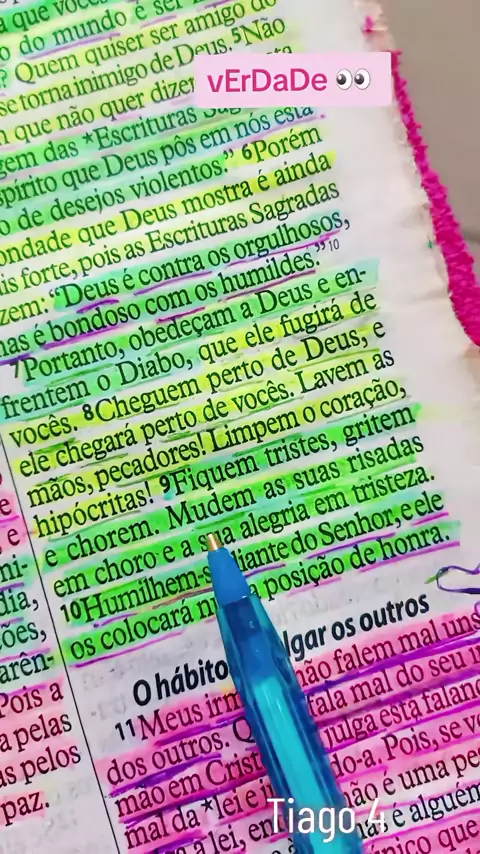 vErDaDe 👀
a que você
o do mundo e ser
? Quem quiser ser amigo do
se torna inimigo de Deus. 5Não
m que não quer dizer
gem das *Escrituras
spírito que Deus pôs em nós está
o de desejos violentos." 6Porém
ondade que Deus mostra é ainda
is forte, pois as Escrituras Sagradas
zem: "Deus é contra os orgulhosos,
mas é bondoso com os humildes."10
7Portanto, obedeçam a Deus e en-
frentem o Diabo, que ele fugirá de
vocês. 8Cheguem perto de Deus, e
ele chegará perto de vocês. Lavem as
mãos, pecadores! Limpem o coração,
hipócritas! 9Fiquem tristes, gritem
e chorem. Mudem as suas risadas
em choro e a sua alegria em tristeza.
10Humilhem-s diante do Senhor, e ele
os colocará n a posição de honra.
O hábito lgar os outros
11Meus irm não falem mal uns
dos outros. Q fala mal do seu
mão em Crist julga está falan
mal da *lei e j do-a. Pois, se v
a lei, en não é uma pe
é alguém
ni-
dia,
ões,
arên-
Pois a
a pelas
as pelos
paz.
Tiago 4